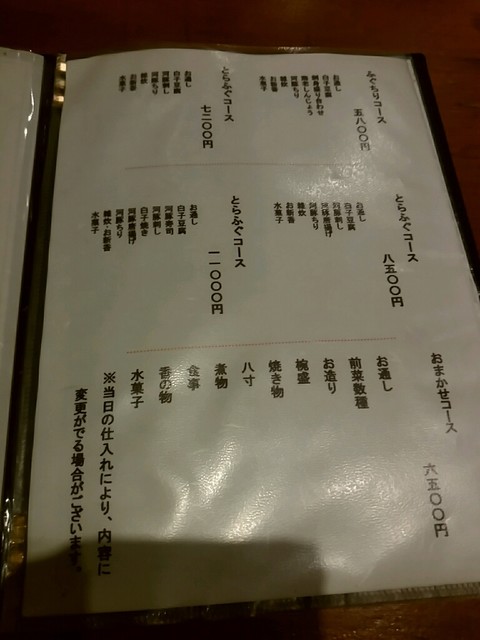 ふぐちりコース
五八〇〇円
お通し
白子豆腐
刺身盛り合わせ
海老しんじょう
河豚ちり
雑炊
お新香
水菓子
とらふぐコース
七二〇〇円
お通し
白子豆腐
河豚刺し
河豚ちり
雑炊
お新香
水菓子
とらふぐコース
八五〇〇円
お通し
白子豆腐
河豚刺し
河豚唐揚げ
河豚ちり
雑炊
お新香
水菓子
とらふぐコース
一一〇〇〇円
お通し
白子豆腐
河豚寿司
河豚刺し
白子焼き
河豚唐揚げ
河豚ちり
雑炊・お新香
水菓子
おまかせコース 六五〇〇円
お通し
前菜数種
お造り
椀盛
焼き物
八寸
煮物
食事
香の物
水菓子
※当日の仕入れにより、内容に
変更がでる場合がございます。